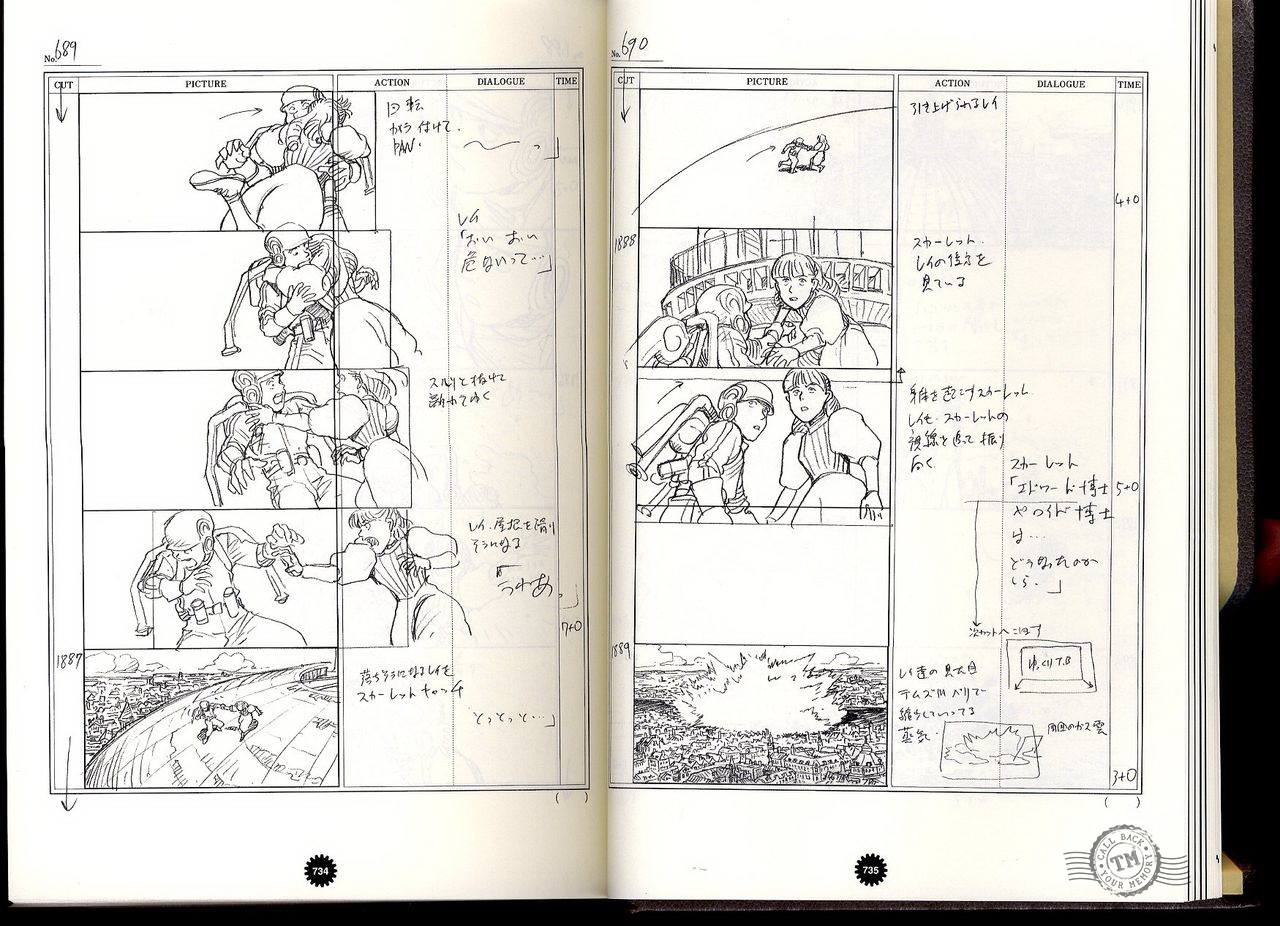 No. 689
CUT
PICTURE
ACTION
DIALOGUE
TIME
回転
カメラ 付けて
PAN.
レイ
「おい おい
危ないって…」
スルリと抜けて
離れてゆく
レイ、屋根を滑り
そうになる
「うわあ。」
7+0
1887
落ちそうになるレイを
スカーレットキャッチ
とっとっと…」
( )
734
No. 690
CUT
PICTURE
ACTION
DIALOGUE
TIME
引き上げられるレイ
4+0
1888
スカーレット.
レイの
見ている
身体を起こすスカーレット
レイも スカーレットの
視線を追って 振り
向く
スカーレット
「エドワード博士
やロイド博士
は…
どうなったのか
しら.」
5+0
次カットへこぼす
1889
レイ達の 見た目
テムズ川 ベリで
蒸気.
ゆっくりT.B
周囲のガス雲
3+0
( )
735
CALL BACK
TM
YOUR MEMORY